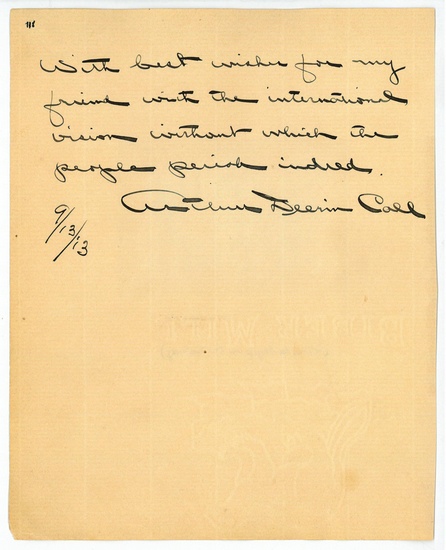 With best wishes for my
friend with the international
vision without which the
people perish indeed.
Arthur Deerin Call
9/13/13